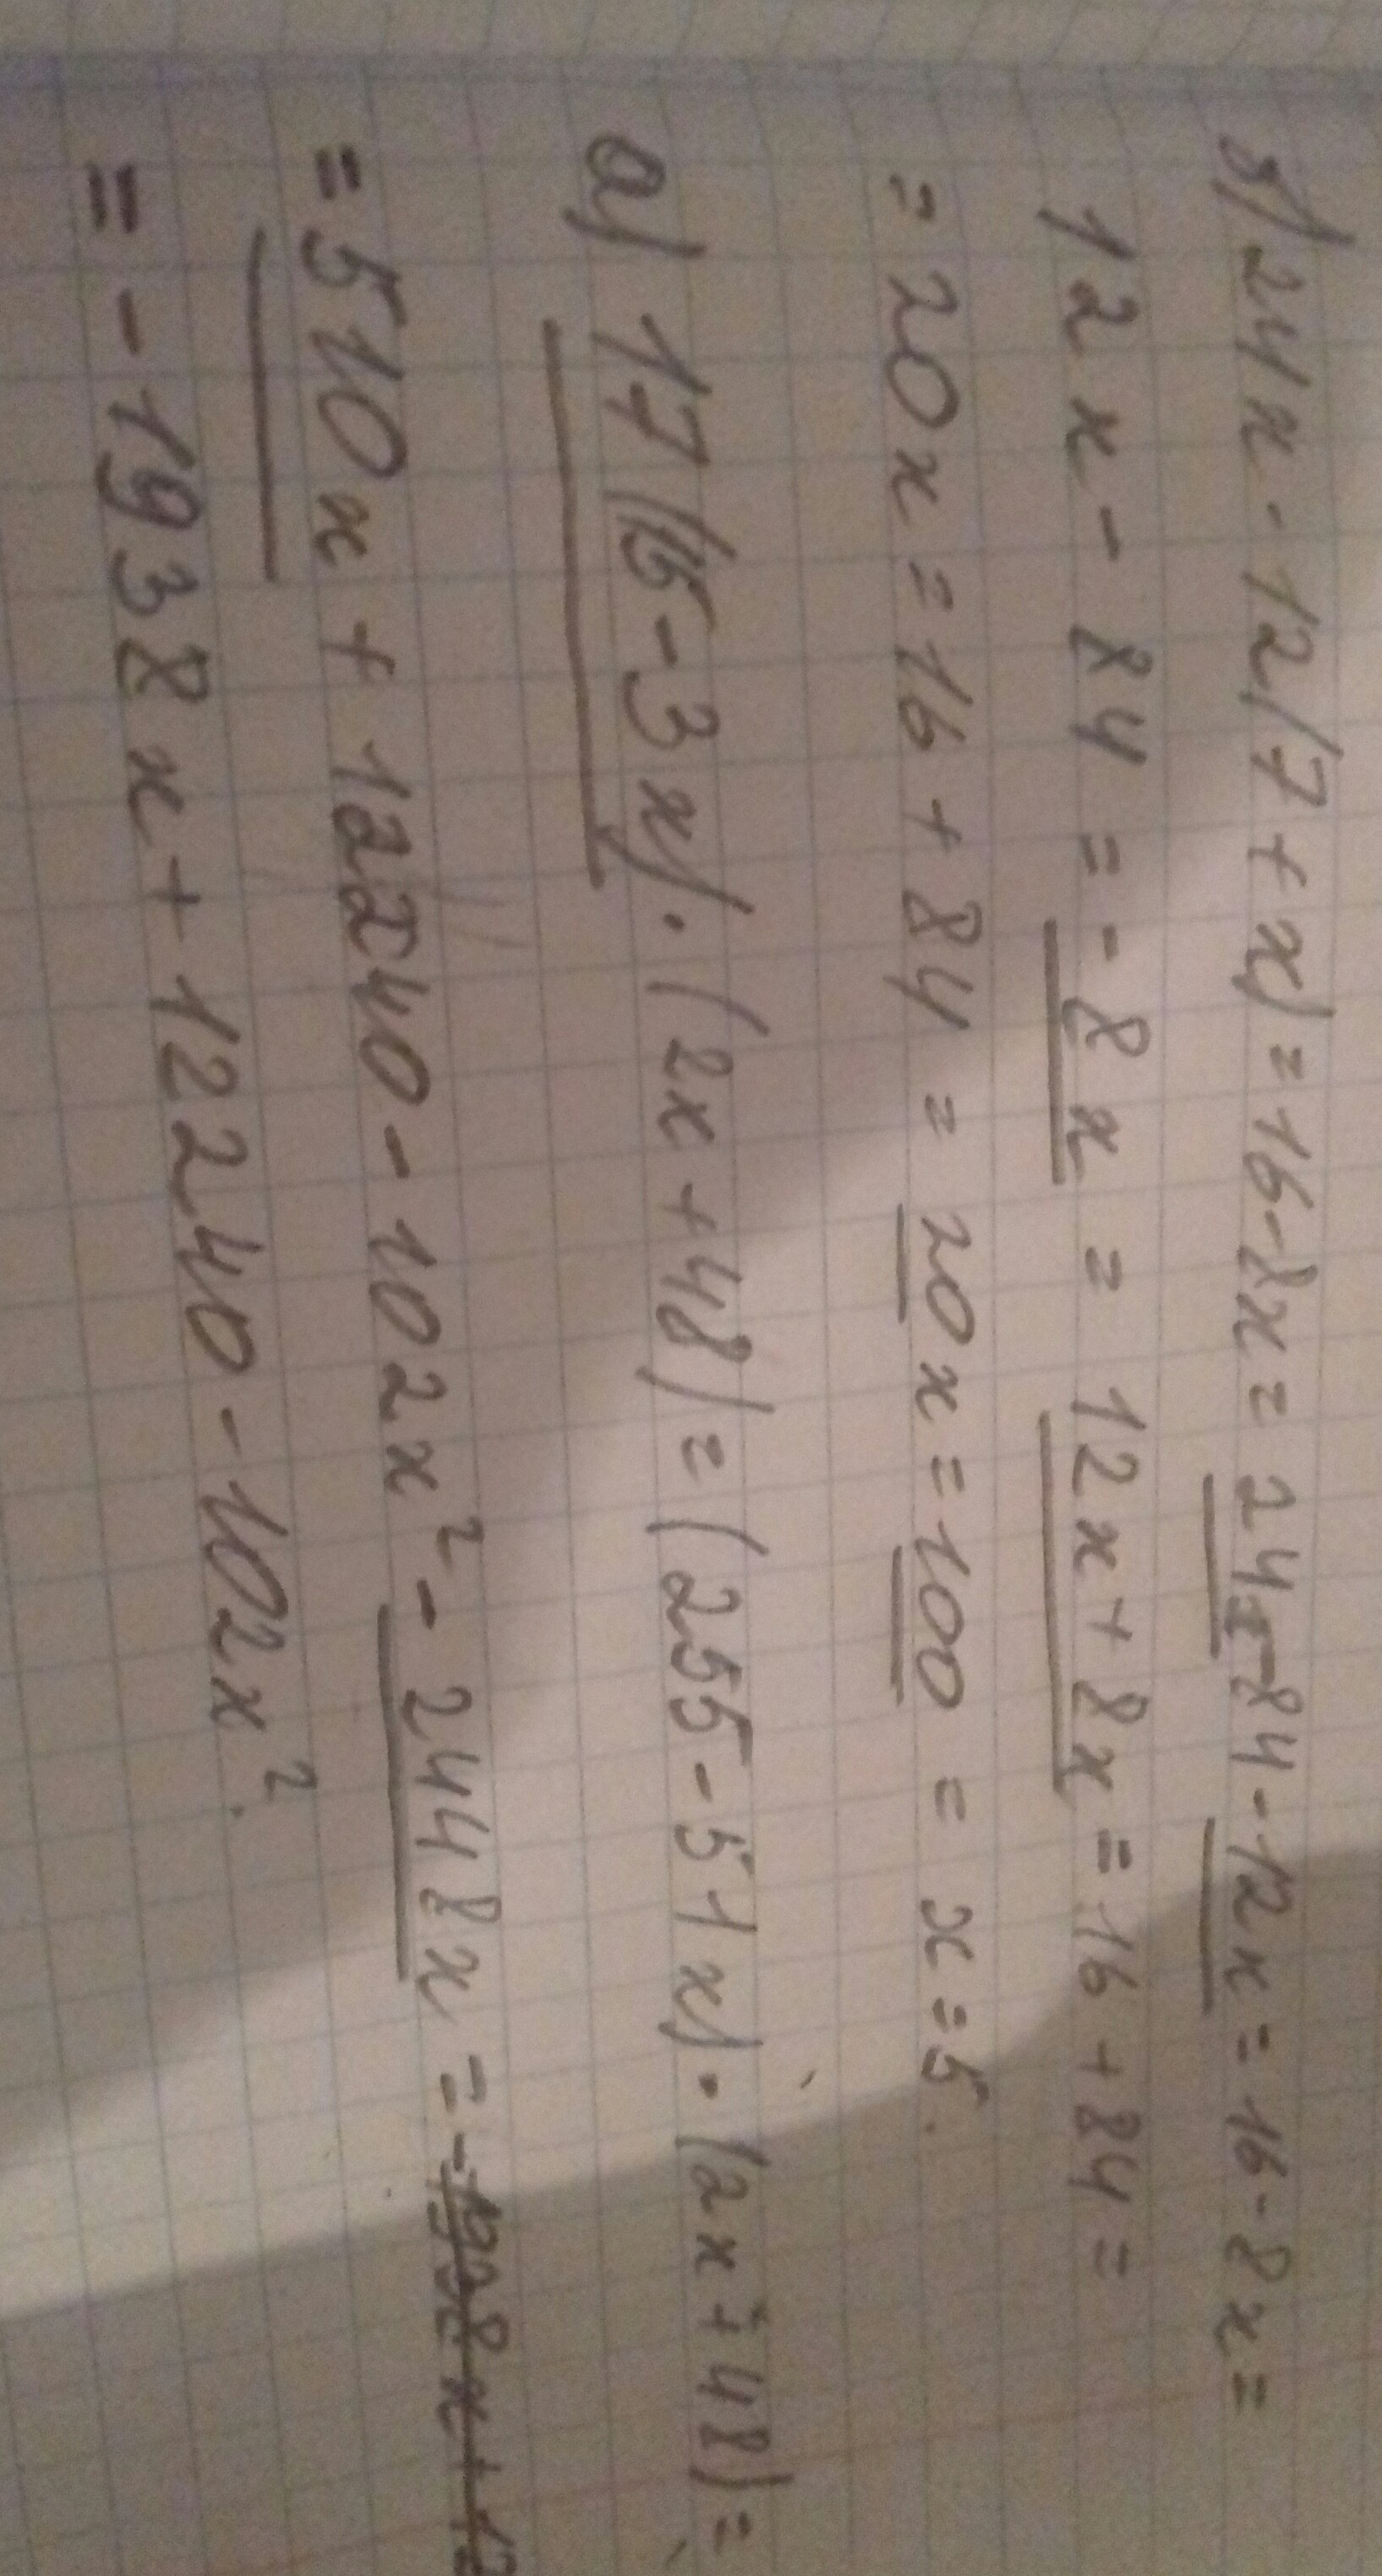 б) 24x - 12(7 + x) = 16 - 8x = 24x - 84 - 12x = 16 - 8x =
12x - 84 = - 8x = 12x + 8x = 16 + 84 =
= 20x = 16 + 84 = 20x = 100 = x = 5.
а) 17(15 - 3x) · (2x + 48) = (255 - 51x) · (2x + 48) =
= 510x + 12240 - 102x² - 2448x =
= - 1938x + 12240 - 102x².